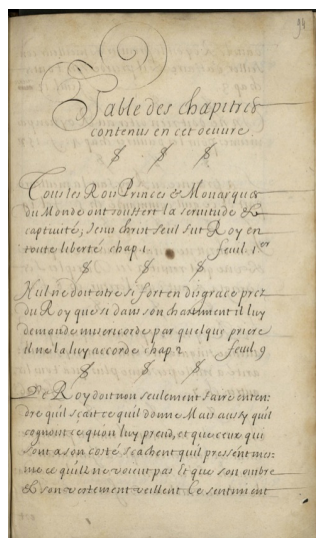 94
Table des chapitres
contenus en cet oeuure.
Tous les Rois Princes & Monarques
du Monde ont souffert la seruitude &
captiuité, Jesus christ seul fut Roy en
toute liberté chap 1 feuil. 1er
Nul ne doit estre si fort en disgrace prez
du Roy que si dans son chastiment il luy
demande misericorde par quelque priere
Il ne la luy accorde chap 2 feuil 9
Le Roy doit non seulement faire enten-
dre qu'il sçait ce qu'il donne Mais aussy qu'il
cognoit ce qu'on luy prend, et que ceux qui
sont a son costé scachent qu'il pressent mes-
me ce qu'ilz ne voient pas Et que son ombre
& son vertement veillent Ce sentiment